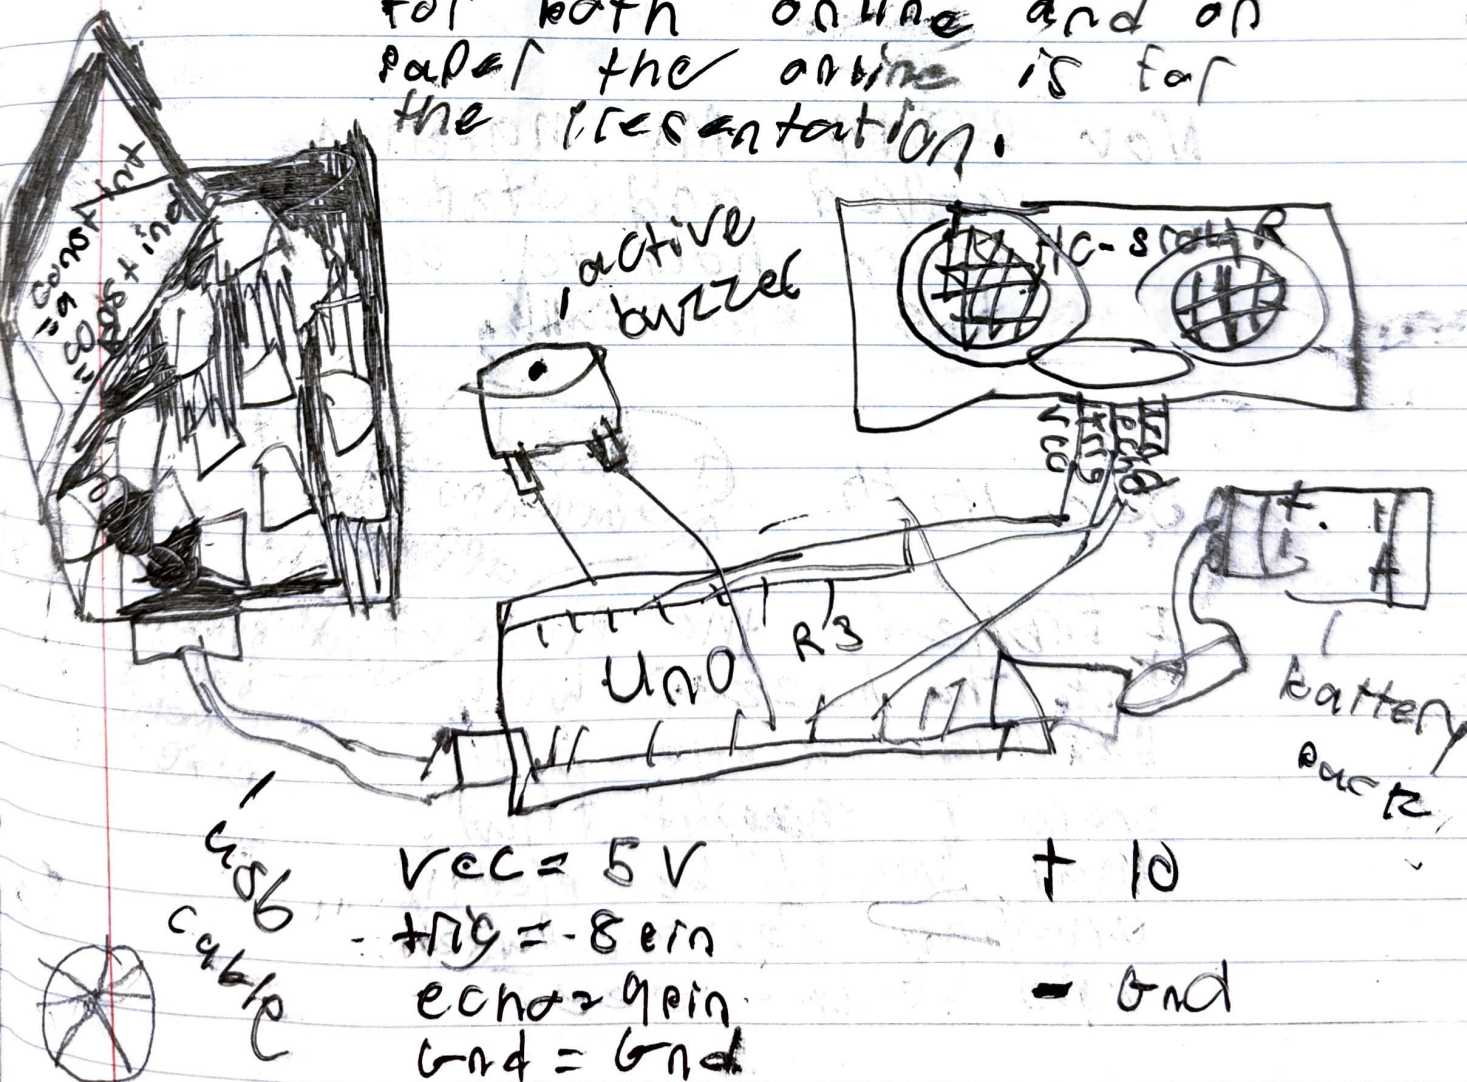 for both online and on
paper the online is for
the presentation.
const int
active
buzzer
HC-sr04
R
vcc
trig
echo
Gnd
Uno
R3
battery
pack
usb
cable
vcc = 5V
+ 10
trig = -8 pin
echo = 9 pin
- Gnd
Gnd = Gnd